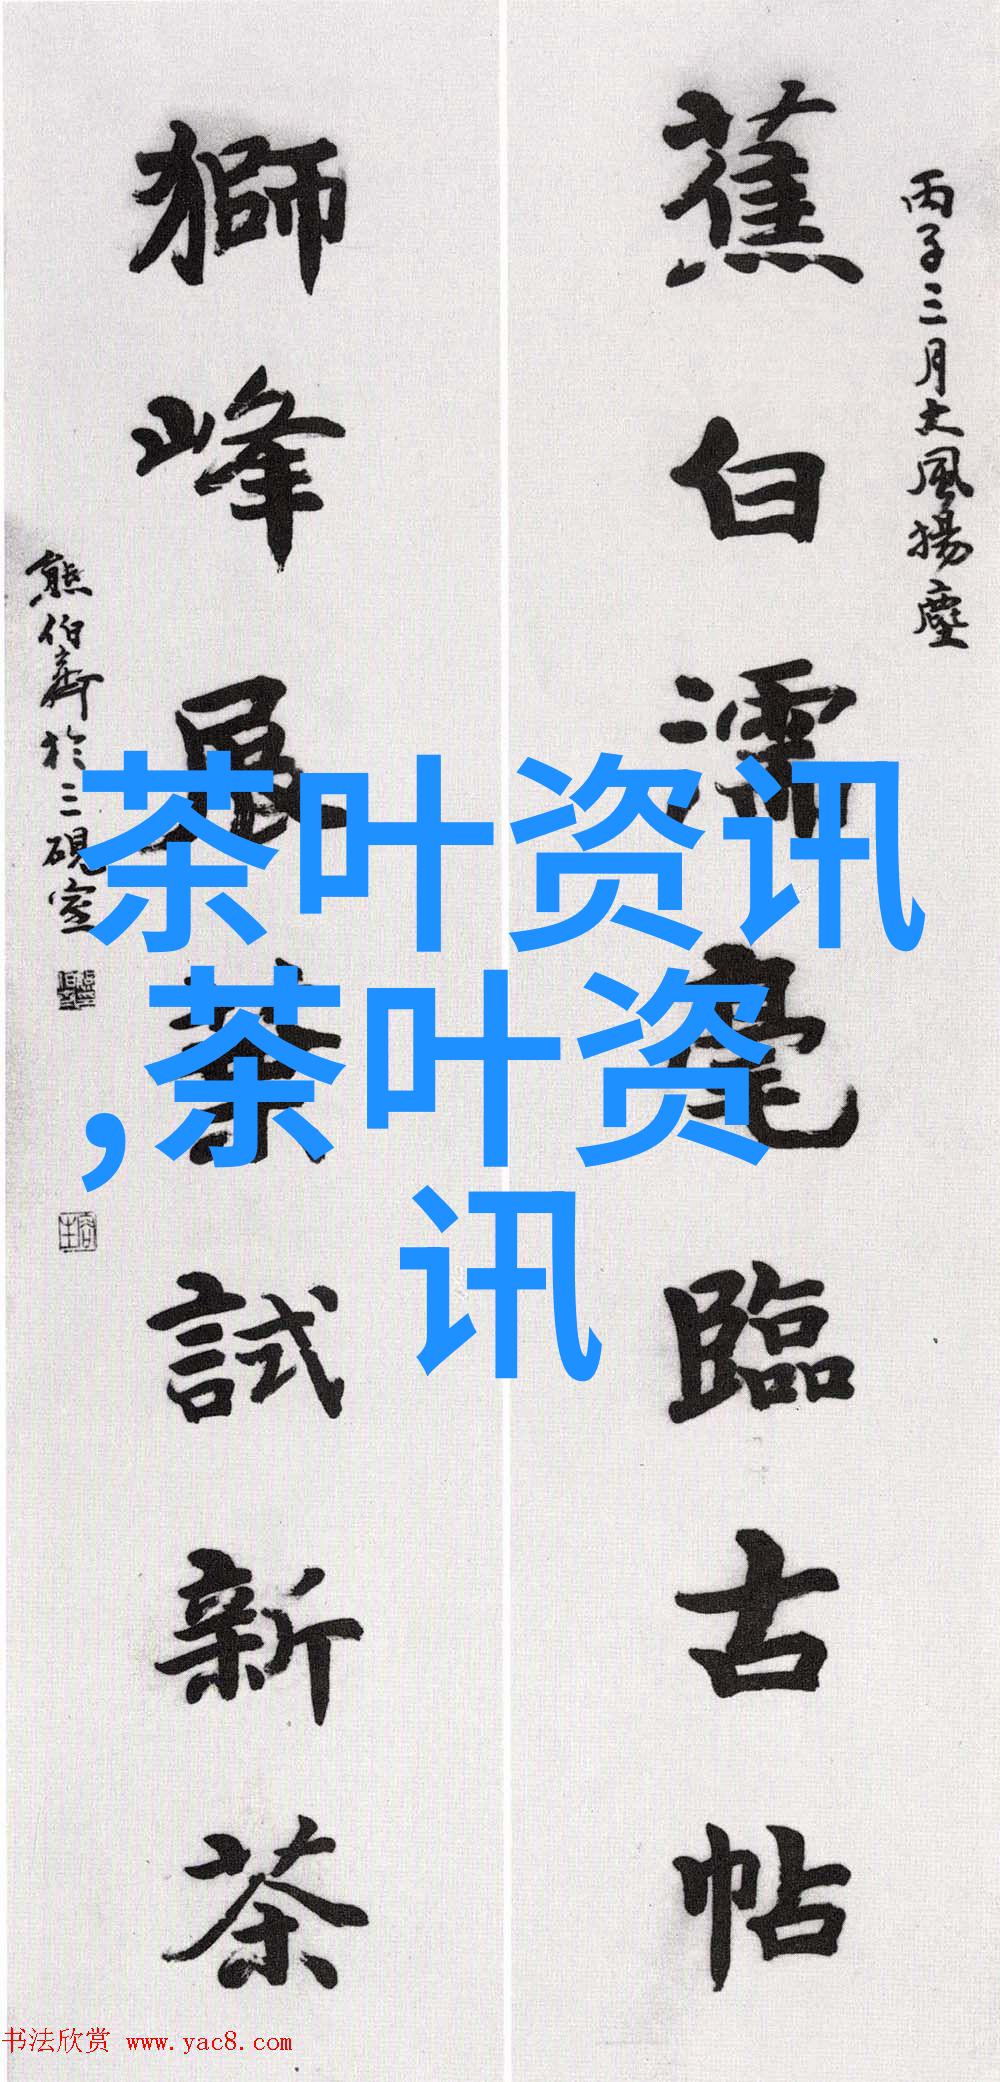 丙子三月大風揚塵
蕉白濡毫臨古帖
獅峰展葉試新茶
熊伯齊於三硯室
茶叶资讯
,茶叶资
讯
书法欣赏 www.yac8.com